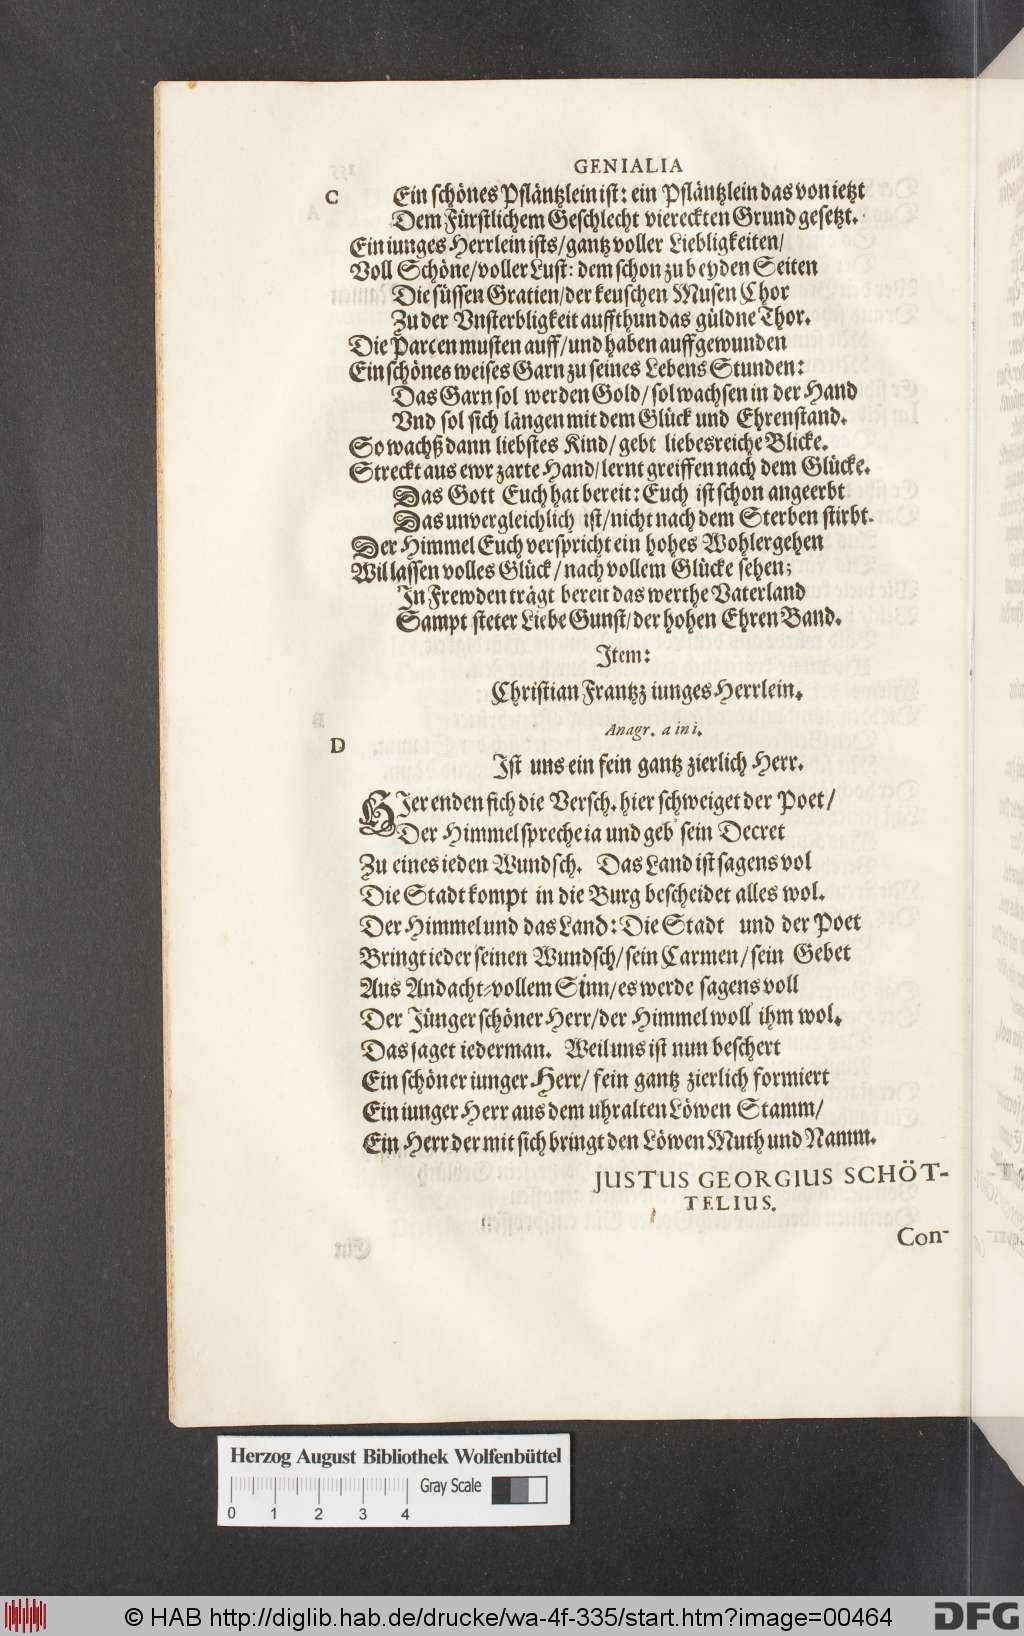 GENIALIA
C Ein schönes Pfläntzlein ist: ein Pfläntzlein das von ietzt
Dem Fürstlichem Geschlecht viereckten Grund gesetzt.
Ein iunges Herrlein ists/gantz voller Liebligkeiten/
Voll Schöne/voller Lust: dem schon zu beyden Seiten
Die süssen Gratien/der keuschen Musen Chor
Zu der Vnsterbligkeit auffthun das güldne Thor.
Die Parcen musten auff/und haben auffgewunden
Ein schönes weises Garn zu seines Lebens Stunden:
Das Garn sol werden Gold/sol wachsen in der Hand
Vnd sol sich längen mit dem Glück und Ehrenstand.
So wachß dann liebstes Kind/gebt liebesreiche Blicke.
Streckt aus ewr zarte Hand/lernt greiffen nach dem Glücke.
Das Gott Euch hat bereit: Euch ist schon angeerbt
Das unvergleichlich ist/nicht nach dem Sterben stirbt.
Der Himmel Euch verspricht ein hohes Wohlergehen
Wil lassen volles Glück/nach vollem Glücke sehen;
In Frewden trägt bereit das werthe Vaterland
Sampt steter Liebe Gunst/der hohen Ehren Band.
Item:
Christian Frantzz iunges Herrlein.
Anagr. a in i.
D
Ist uns ein fein gantz zierlich Herr.
HIer enden sich die Versch. hier schweiget der Poet/
Der Himmel spreche ia und geb' sein Decret
Zu eines ieden Wundsch. Das Land ist sagens vol
Die Stadt kompt in die Burg bescheidet alles wol.
Der Himmel und das Land: Die Stadt und der Poet
Bringt ieder seinen Wundsch/sein Carmen/sein Gebet
Aus Andacht-vollem Sinn/es werde sagens voll
Der Jünger schöner Herr/der Himmel woll' ihm wol.
Das saget iederman. Weil uns ist nun beschert
Ein schöner iunger Herr/fein gantz zierlich formiert
Ein iunger Herr aus dem uhralten Löwen Stamm/
Ein Herr der mit sich bringt den Löwen Muth und Namm.
JUSTUS GEORGIUS SCHÖT-
TELIUS.
Con-
Herzog August Bibliothek Wolfenbüttel
Gray Scale
0 1 2 3 4
© HAB http://diglib.hab.de/drucke/wa-4f-335/start.htm?image=00464
DFG